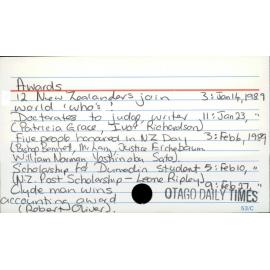 Awards
12 New Zealanders join 3: Jan 14, 1989
world 'who's'!
Doctorates to judge, writer 11: Jan 23, "
(Patricia Grace, Ivor Richardson)
Five people honoured in NZ Day 3: Feb 6, 1989
(Bishop Bennet, Justice Eichelbaum
William Norman, Yoshinobu Sato)
Scholarship to Dunedin student 5: Feb 10, "
(N.Z. Post Scholarship - Leone Ripley)
Clyde man wins 9: Feb 27, "
accounting award
(Robert Oliver).
OTAGO DAILY TIMES
53/C